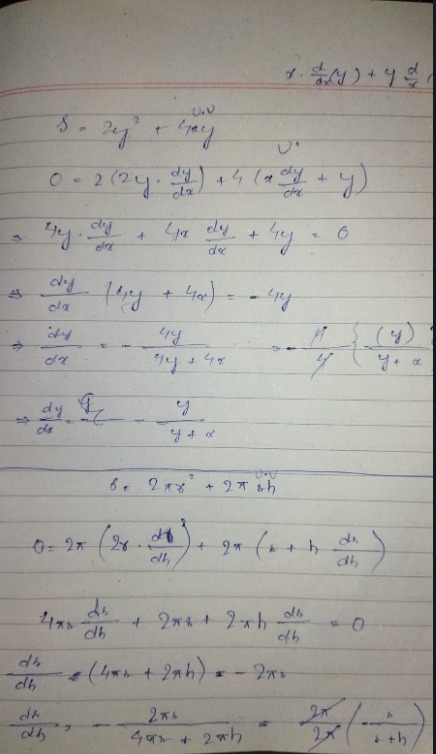 x · d/dx (y) + y d/x (
u·v
S = 2y² + 4xy
U·
0 = 2 (2y · dy/dx) + 4 (x dy/dx + y)
⇒ 4y · dy/dx + 4x dy/dx + 4y = 0
⇒ dy/dx (4y + 4x) = - 4y
⇒ dy/dx = - 4y/4y + 4x ⇒ - 4/4 { (y)/y + x
⇒ dy/dx = - y/y + x
u·v
S = 2πr² + 2πrh
0 = 2π (2r · dr/dh) + 2π (r + h dr/dh)
4πr dr/dh + 2πr + 2πh dr/dh = 0
dr/dh = (4πr + 2πh) = - 2πr
dr/dh = - 2πr/4πr + 2πh = 2π/2π (- r/r + h)